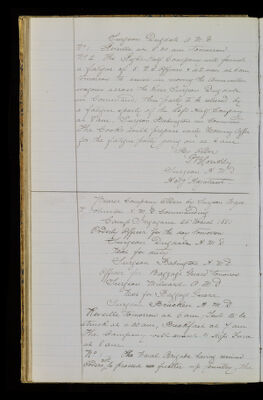 Surgeon Dugdale A.M.D
No 1. Reveille at 5.30 am tomorrow
No 2. The Right Half Company will furnish
a fatigue of
tomorrow to assist in moving the Ammunition
wagons across the river Surgeon Dugdale
in Command, this party to be relieved by
a fatigue party of the Left Half Company
at 8 am, Surgeon Babington in Command
The Cooks will prepare early morning Coffee
for the fatigue party going on at 4 am
By Order
Surgeon A.M.D
Bearer Company Orders by Surgeon Major
Johnson A.M.D Commanding
Camp Ingagane
Orderly Officer for the day tomorrow
Surgeon Dugdale A.M.D
Next for duty
Surgeon Babington A.M.D
Officer for Baggage Guard tomorrow
Surgeon A.M.D
Next for Baggage Guard
Surgeon A.M.D
Reveille tomorrow at 5 am, Tents to be
struck at 6.30 am, Breakfast at 7 am
The Company will
at 8 am
No 1. The Naval Brigade having received
orders to proceed no further up country, the